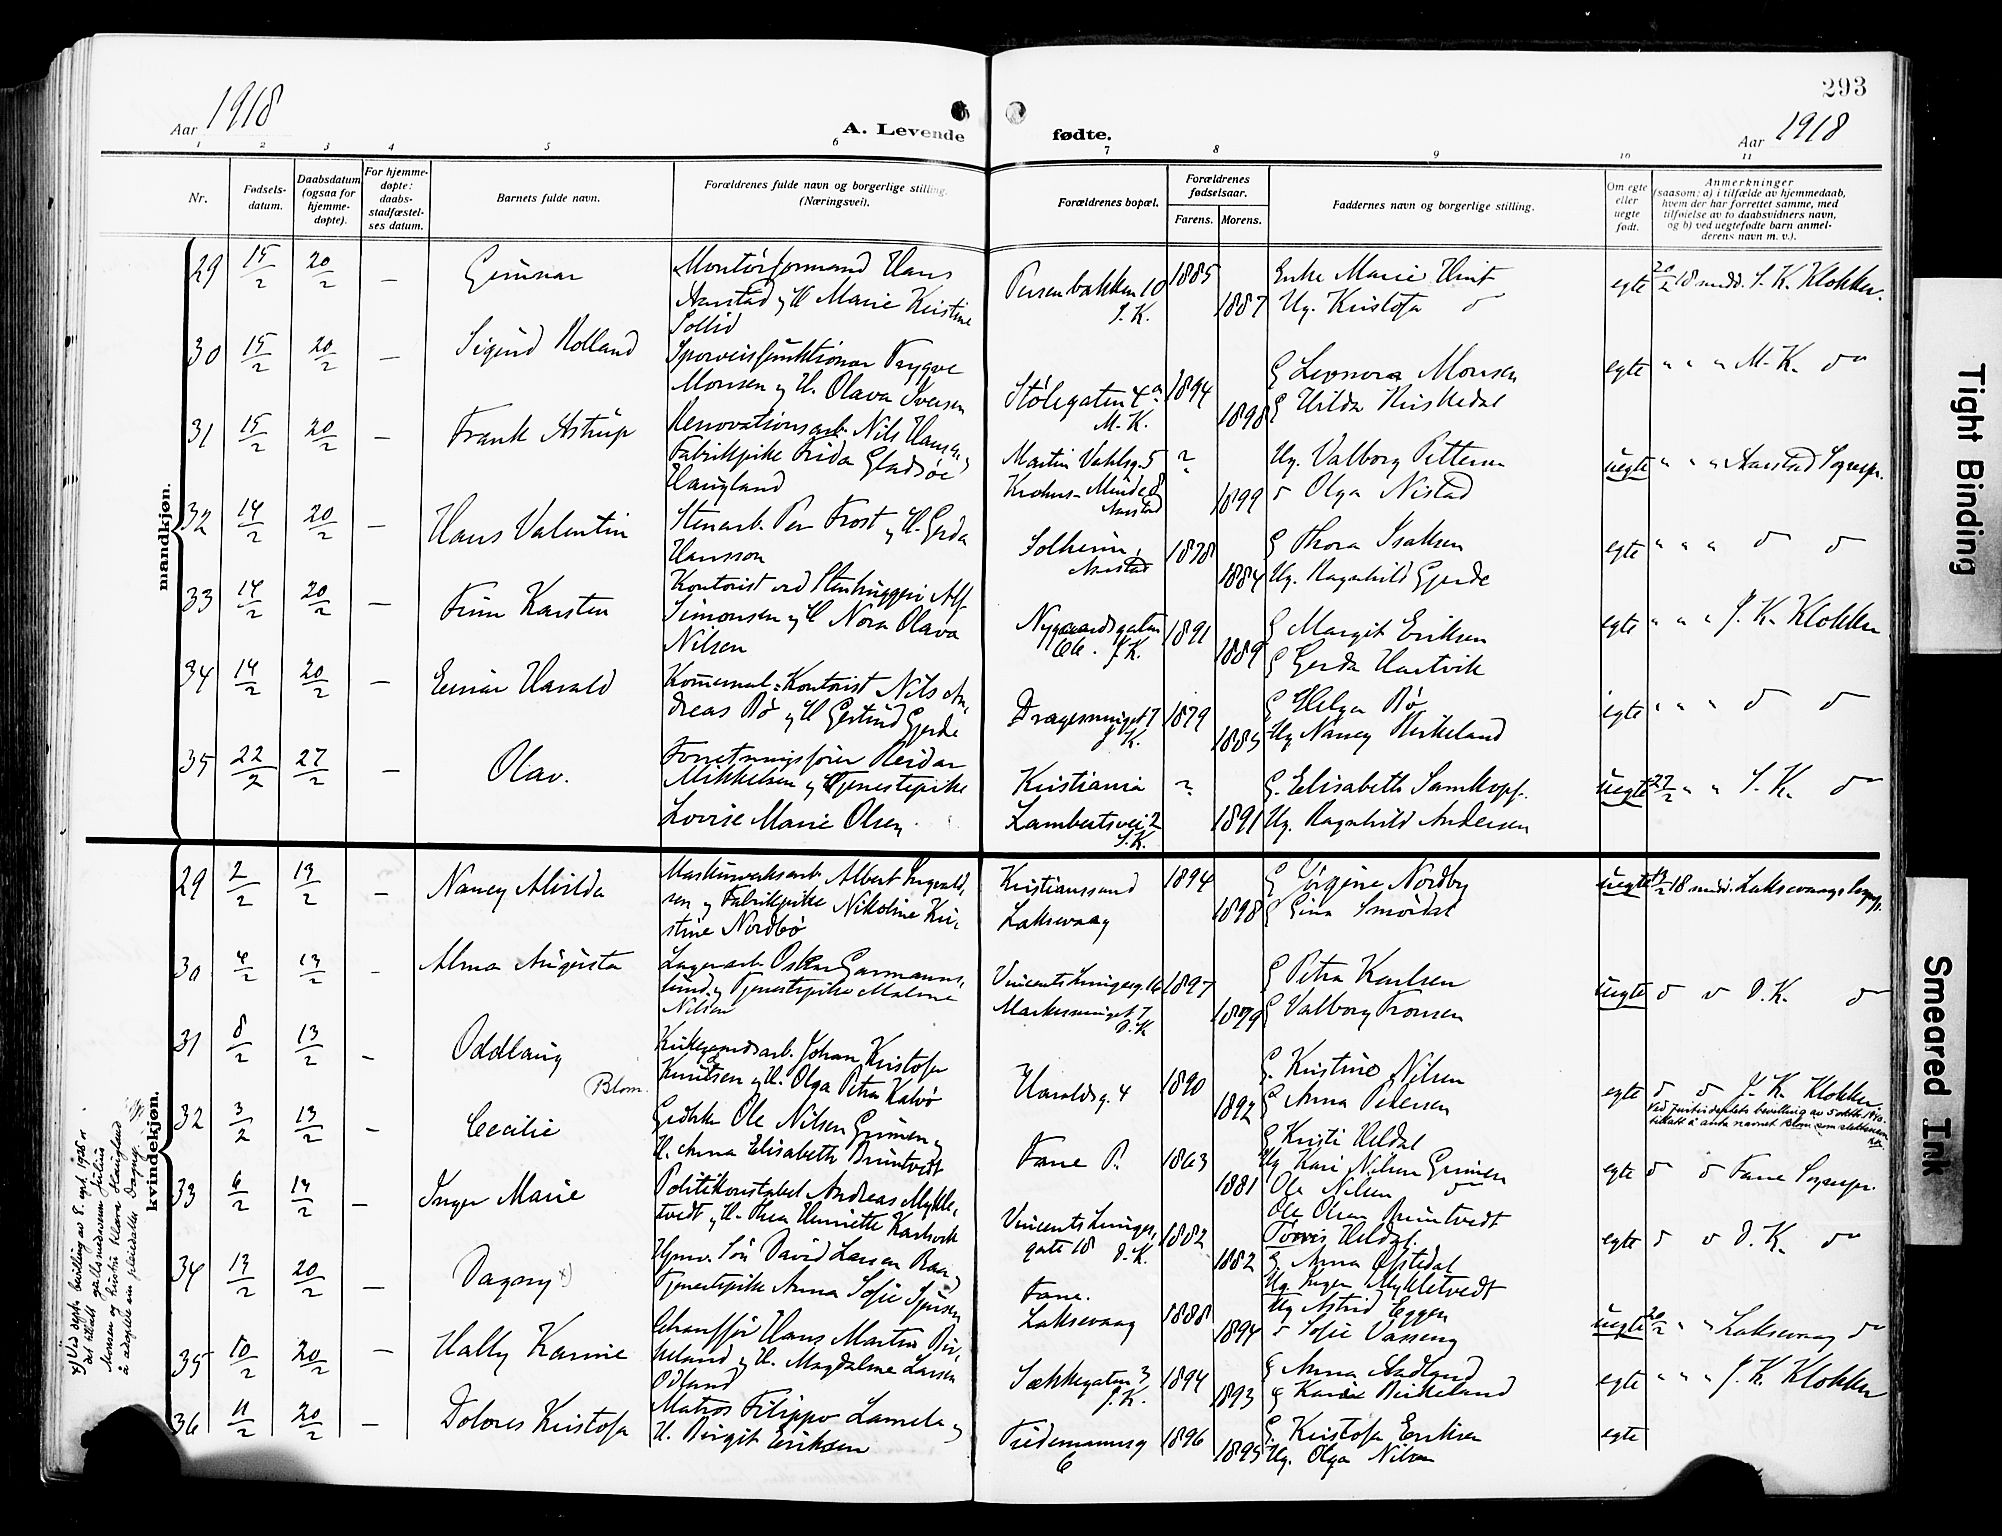 293
Aar 1918
A. Levende fødte.
Aar 1918
1 2 3 4 5 6 7 8 9 10 11
Nr.
Fødsels-
datum.
Daabsdatum
(ogsaa for
hjemme-
døpte).
For hjemme-
døpte:
daabs-
stadfæstel-
ses datum.
Barnets fulde navn.
Forældrenes fulde navn og borgerlige stilling.
(Næringsvei).
Forældrenes bopæl.
Forældrenes
fødselsaar.
Farens. Morens.
Faddernes navn og borgerlige stilling.
Om egte
eller
uegte
født.
Anmerkninger
(saasom: a) i tilfælde av hjemmedaab,
hvem der har forrettet samme, med
tilføielse av to daabsvidners navn,
og b) ved uegtefødte barn anmel-
derens navn m. v.).
mandkjøn.
29 15/2 20/2 — Gunnar
Montørformand Hans
Aarstad og H. Marie Kristine
Sollid
Persenbakken 10
S. K.
1885 1887
Enke Marie
Ug. Kristofa
egte 20/2 18 medd. S. K. Klokker.
30 15/2 20/2 — Sigurd Holland
Sporveisfunktionær Trygve
Monsen og H. Olava Iversen
Stølegaten 4a
M. K.
1894 1898
G Leonora Monsen
G Hilda
egte " " " M. K. do
31 15/2 20/2 — Frank Astrup
Renovationsarb. Nils Hansen,
Fabrikpike Frida Gladsøe
Haugland
Martin Vahlsg. 5
Krohns-Minde 8
Aarstad
? 1899
Ug. Valborg Pettersen
do Olga Nistad
uegte " " " Aarstad Sognepr.
32 14/2 20/2 — Hans Valentin
Stenarb. Per Frost og H. Gerda
Hansson
Solheim,
Aarstad
1878 1884
G Thora Isaksen
Ug. Ragnhild Gjerde
egte " " " do do
33 14/2 20/2 — Finn Karsten
Kontorist ved Stenhuggeri Alf
Simonsen og H Nora Olava
Nilsen
Nygaardsgaten
J. K.
1891 1889
G Margit Eriksen
G Gerda Hartvik
egte " " " J. K. Klokker
34 14/2 20/2 — Einar Harald
Kommunal-Kontorist Nils An-
dreas Bø og H Gertrud Gjerde
Dragesmuget 7
J K.
1879 1885
G Helga Bø
Ug Nancy Birkeland
egte " " " do do
35 22/2 27/2 — Olav.
Forretningsfører Reidar
Mikkelsen og Tjenestepike
Lovise Marie Olsen
Kristiania
Lambertsvei 2
S. K.
? 1891
G. Elisabeth
Ug. Ragnhild Andersen
uegte 27/2 " " S. K. do
kvindekjøn.
29 2/2 13/2 — Nancy Alvilda
Maskinverksarb. Albert Ingvald-
sen og Fabrikpike Nikoline Kri-
stine Nordbø
Kristianssund
Laksevaag
1894 1898
G Jørgine Nordby
G Gina Smørdal
uegte 13/2 18 medd. Laksevaags Sognepr.
30 4/2 13/2 — Alma Augusta
Lagerarb. Oskar Garmanns-
lund og Tjenestepike Malene
Nilsen
Vincents Lungesg. 16
Markesmuget 7
D. K
1897 1899
G Petra Karlsen
G Valborg Tronsen
uegte do do D. K. do
31 8/2 13/2 — Oddlaug
Blom.
Kirkegaardsarb. Johan Kristofer
Knutsen og H. Olga Petra Kalvø
Haraldsg. 4
1890 1892
G. Kristine Nilsen
G Anna Pedersen
egte do do J. K. Klokker.
Ved Justisdeptets bevilling av 5 oktbr. 1940
tillatt å anta navnet Blom som slektsnavn
32 3/2 13/2 — Cecilie
Gbrkr. Ole Nilsen Grimen og
H. Anna Elisabeth Bruntvedt
Fane P.
1863 1881
G Kristi Heldal
Ug Kari Nilsen Grimen
Ole Nilsen do
Ole Olsen Bruntvedt
Heldal.
egte do do Fane Sognepr.
33 6/2 13/2 — Inga Marie
Politikonstabel Andreas Mykle-
tvedt og H. Thea Henriette
Vincents Lunges-
gate 18 D. K.
1882 1882
G. Anna Ofstedal
Ug. Inger Mykletvedt
egte do do D. K. do
34 13/2 20/2 — Dagny x)
Søn David Larsen
Tjenestepike Anna Sofie
Fane.
Laksevaag
1888 1894
Ug Astrid Eggen
do Sofie Vasseng
uegte 20/2 " " Laksevaag do
35 10/2 20/2 — Hally Karine
Chauffør Hans Martin Bir-
keland og H. Magdalene Larsen
Odland
Sækkegaten 3
J. K.
1894 1893
G Anna
G Karin Birkeland
egte " " " J. K. Klokker
36 11/2 20/2 — Dolores Kristofa
Matros Filippo Lamela og
H. Birgit Eriksen
Tidemannsg
6
1896 1895
G. Kristofa Eriksen
Ug. Olga Nilsen
egte
x) Ved depts bevilling av 8. sept 1926 er
det tillatt
Monsen og hustru Klara Haugland
å adoptere sin pleiedatter Dagny.
Tight Binding
Smeared Ink